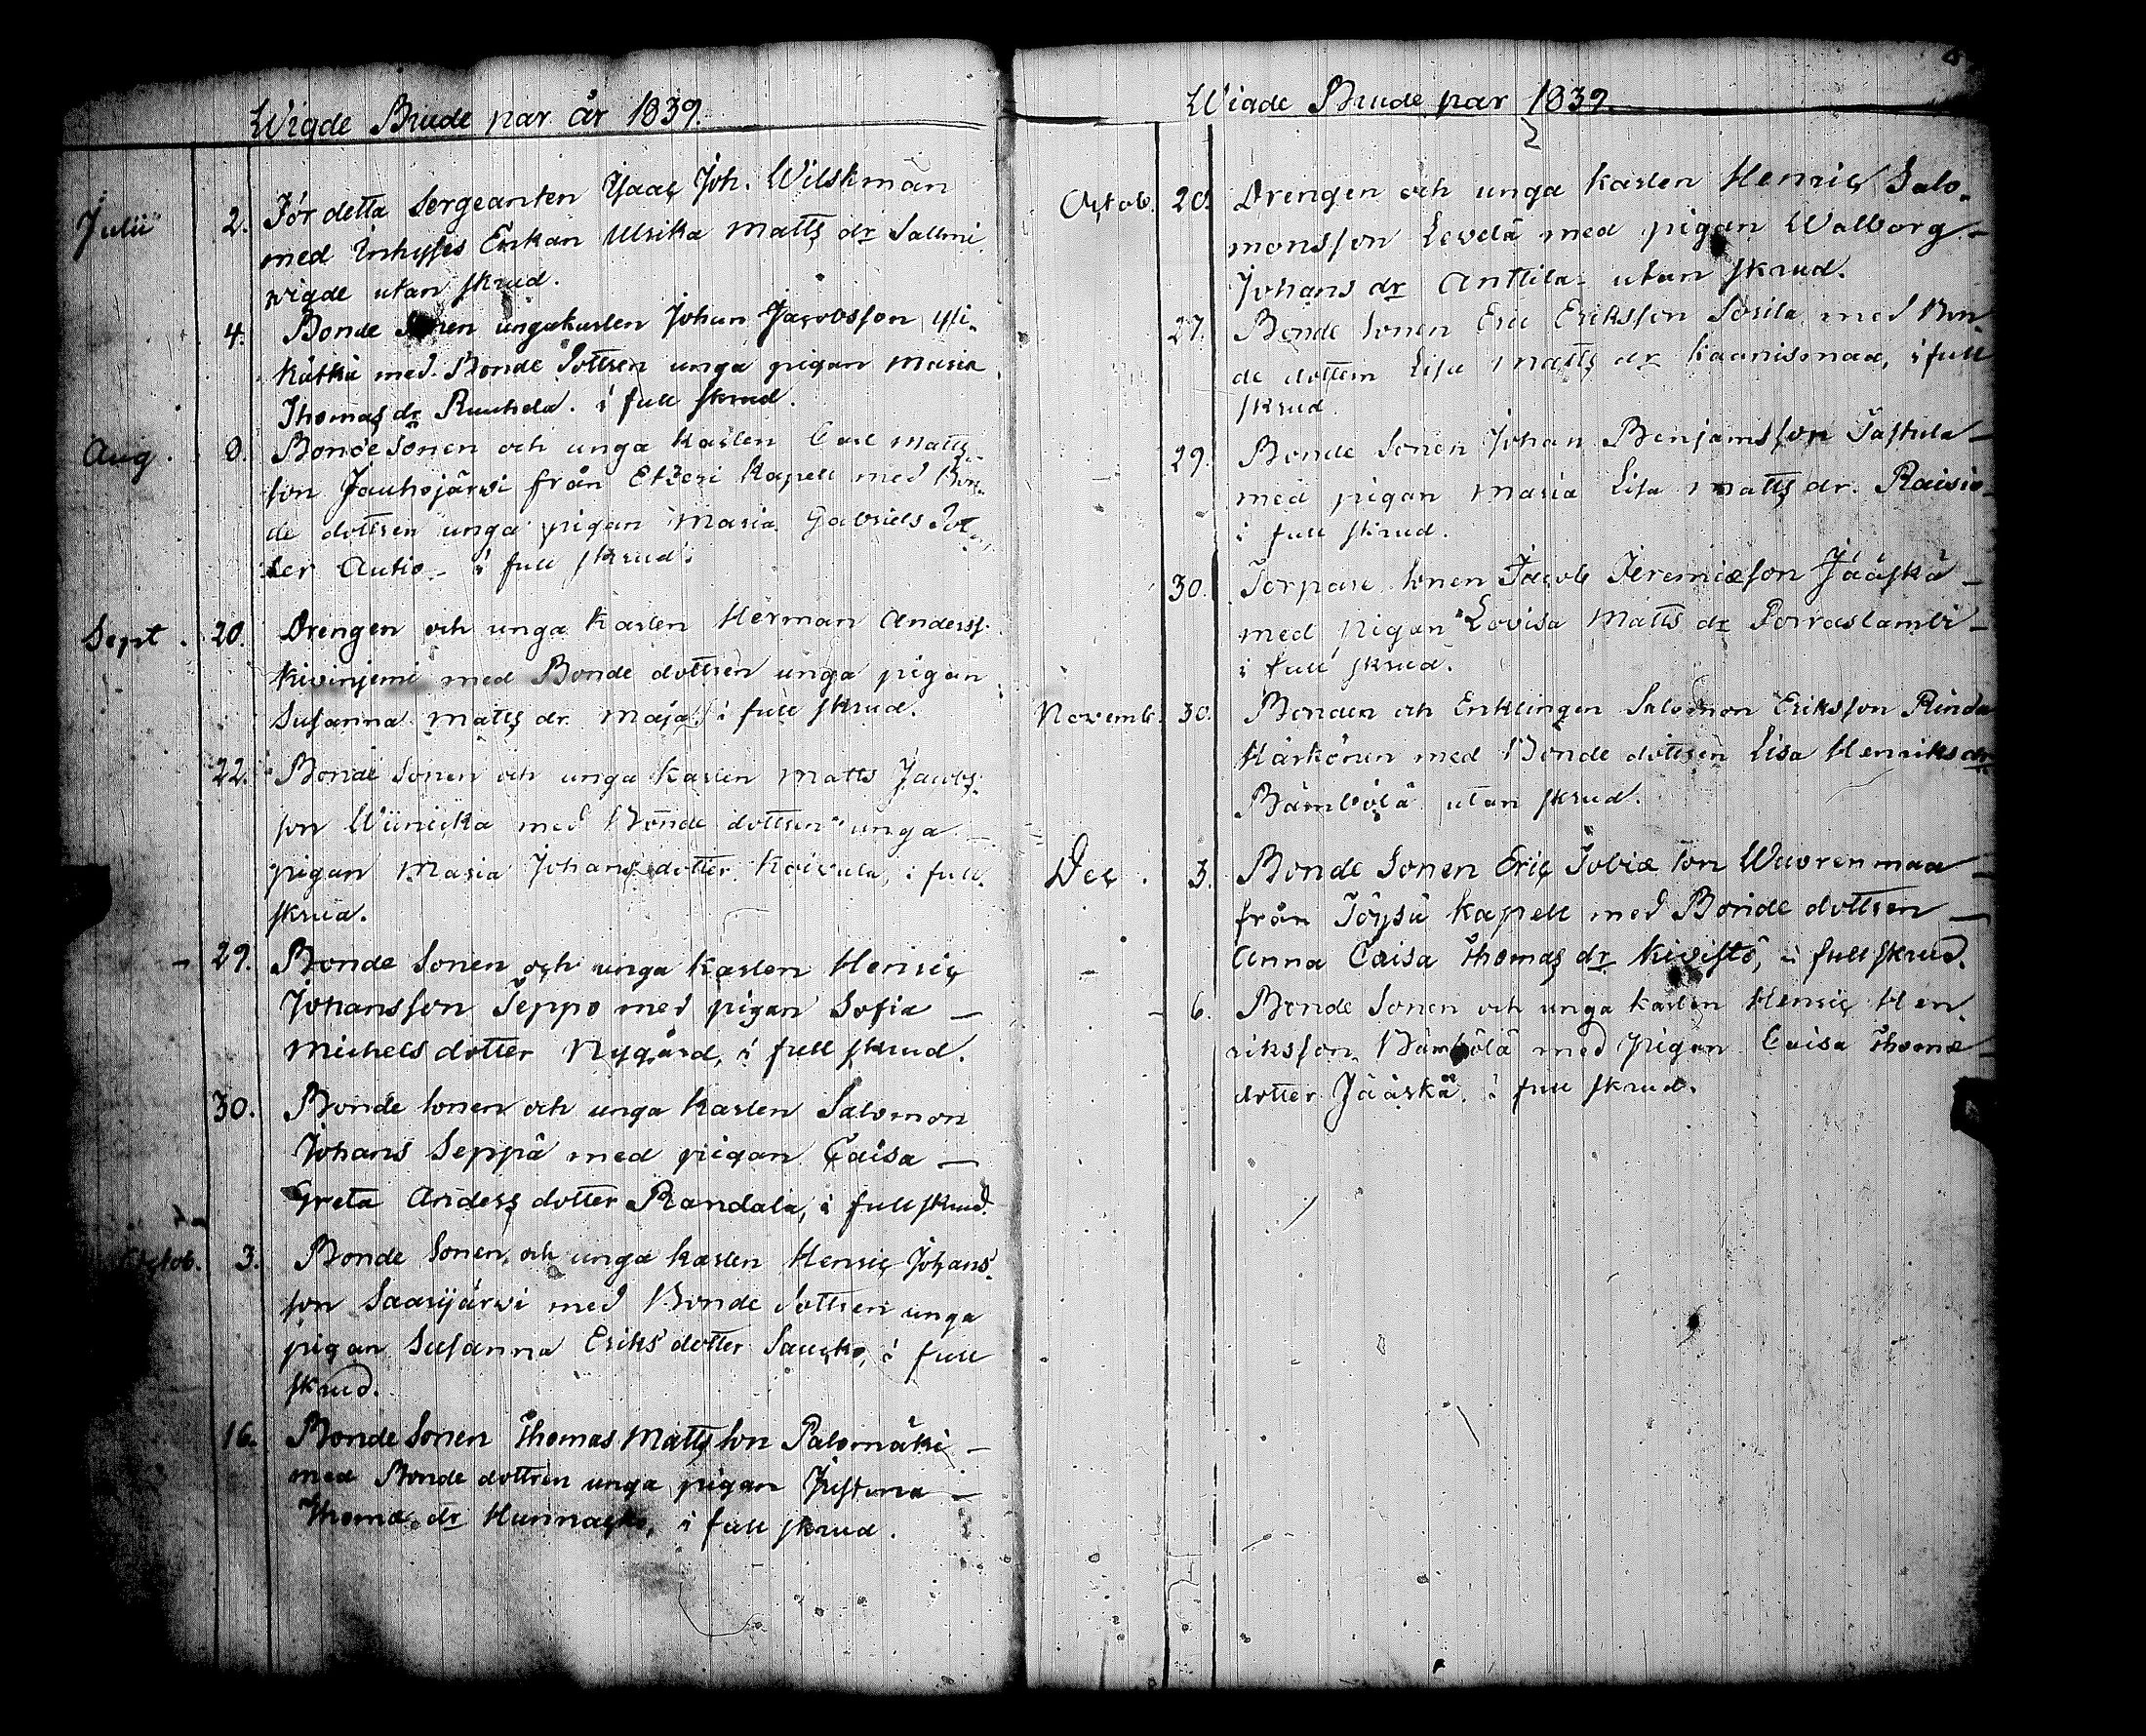 Wigde Brude par år 1839.
Julii 2. För detta Sergeanten Isaac Joh. Wilskman
med Inhyses Enkan Ulrika Matts dr Sallmi
wigde utan skrud.
4. Bonde Sonen ungakarlen Johan Jacobsson Yli-
Kätkä med Bonde dottren unga pigan Maria
Thomas dr Ruuhela. i full skrud.
Aug. 8. Bonde Sonen och unga karlen Carl Matts-
son Jauhojärwi från Etseri Kapell med Bon-
de dottren unga pigan Maria Gabriels dot-
ter Autio i full skrud.
Sept. 20. Drengen och unga karlen Herman Anderss.
Kivinjemi med Bonde dottren unga pigan
Susanna Matts dr. Maja i full skrud.
22. Bonde Sonen och unga karlen Matts Jacobs-
son Wiinicka med Bonde dottren unga
pigan Maria Johans dotter Koivula, i full
skrud.
29. Bonde Sonen och unga karlen Henric
Johansson Seppo med pigan Sofia
Michels dotter Nygård, i full skrud.
30. Bonde Sonen och unga karlen Salomon
Johans Seppä med pigan Caisa
Greta Anders dotter Randala, i full skrud.
Octob. 3. Bonde Sonen och unga karlen Henric Johans-
son Saarijärwi med Bonde dottren unga
pigan Susanna Eriks dotter Saucko, i full
skrud.
16. Bonde Sonen Thomas Matts son Palomäki
med Bonde dottren unga pigan Justina
Thomæ dr Hunnacko, i full skrud.
Wigde Brude par 1839.
Octob. 20. Drengen och unga karlen Henric Salo-
monsson Levelä med pigan Walborg
Johans dr Anttila utan skrud.
27. Bonde Sonen Eric Eriksson Sorila med Bon
de dottern Lisa Matts dr Kaunismaa, i full
skrud.
29. Bonde Sonen Johan Benjamsson Tastula
med pigan Maria Lisa Matts dr. Raisio
i full skrud.
30. Torpare Sonen Jacob Jeremiæson Jääskä
med pigan Lovisa Matts dr Porraslambi
i full skrud.
Novemb. 30. Bonden och Enklingen Salomon Eriksson Rinda
Härkönen med Bonde dottren Lisa Henriks dr
Bämbölä utan skrud.
Dec. 3. Bonde Sonen Eric Tobiæ son Wuorenmaa
från Töysä Kapell med Bonde dottren
Anna Caisa Thomas dr Kivistö, i full skrud.
6. Bonde Sonen och unga karlen Henric Hen-
riksson Bämbölä med pigan Caisa Thomæ
dotter Jääskä. i full skrud.